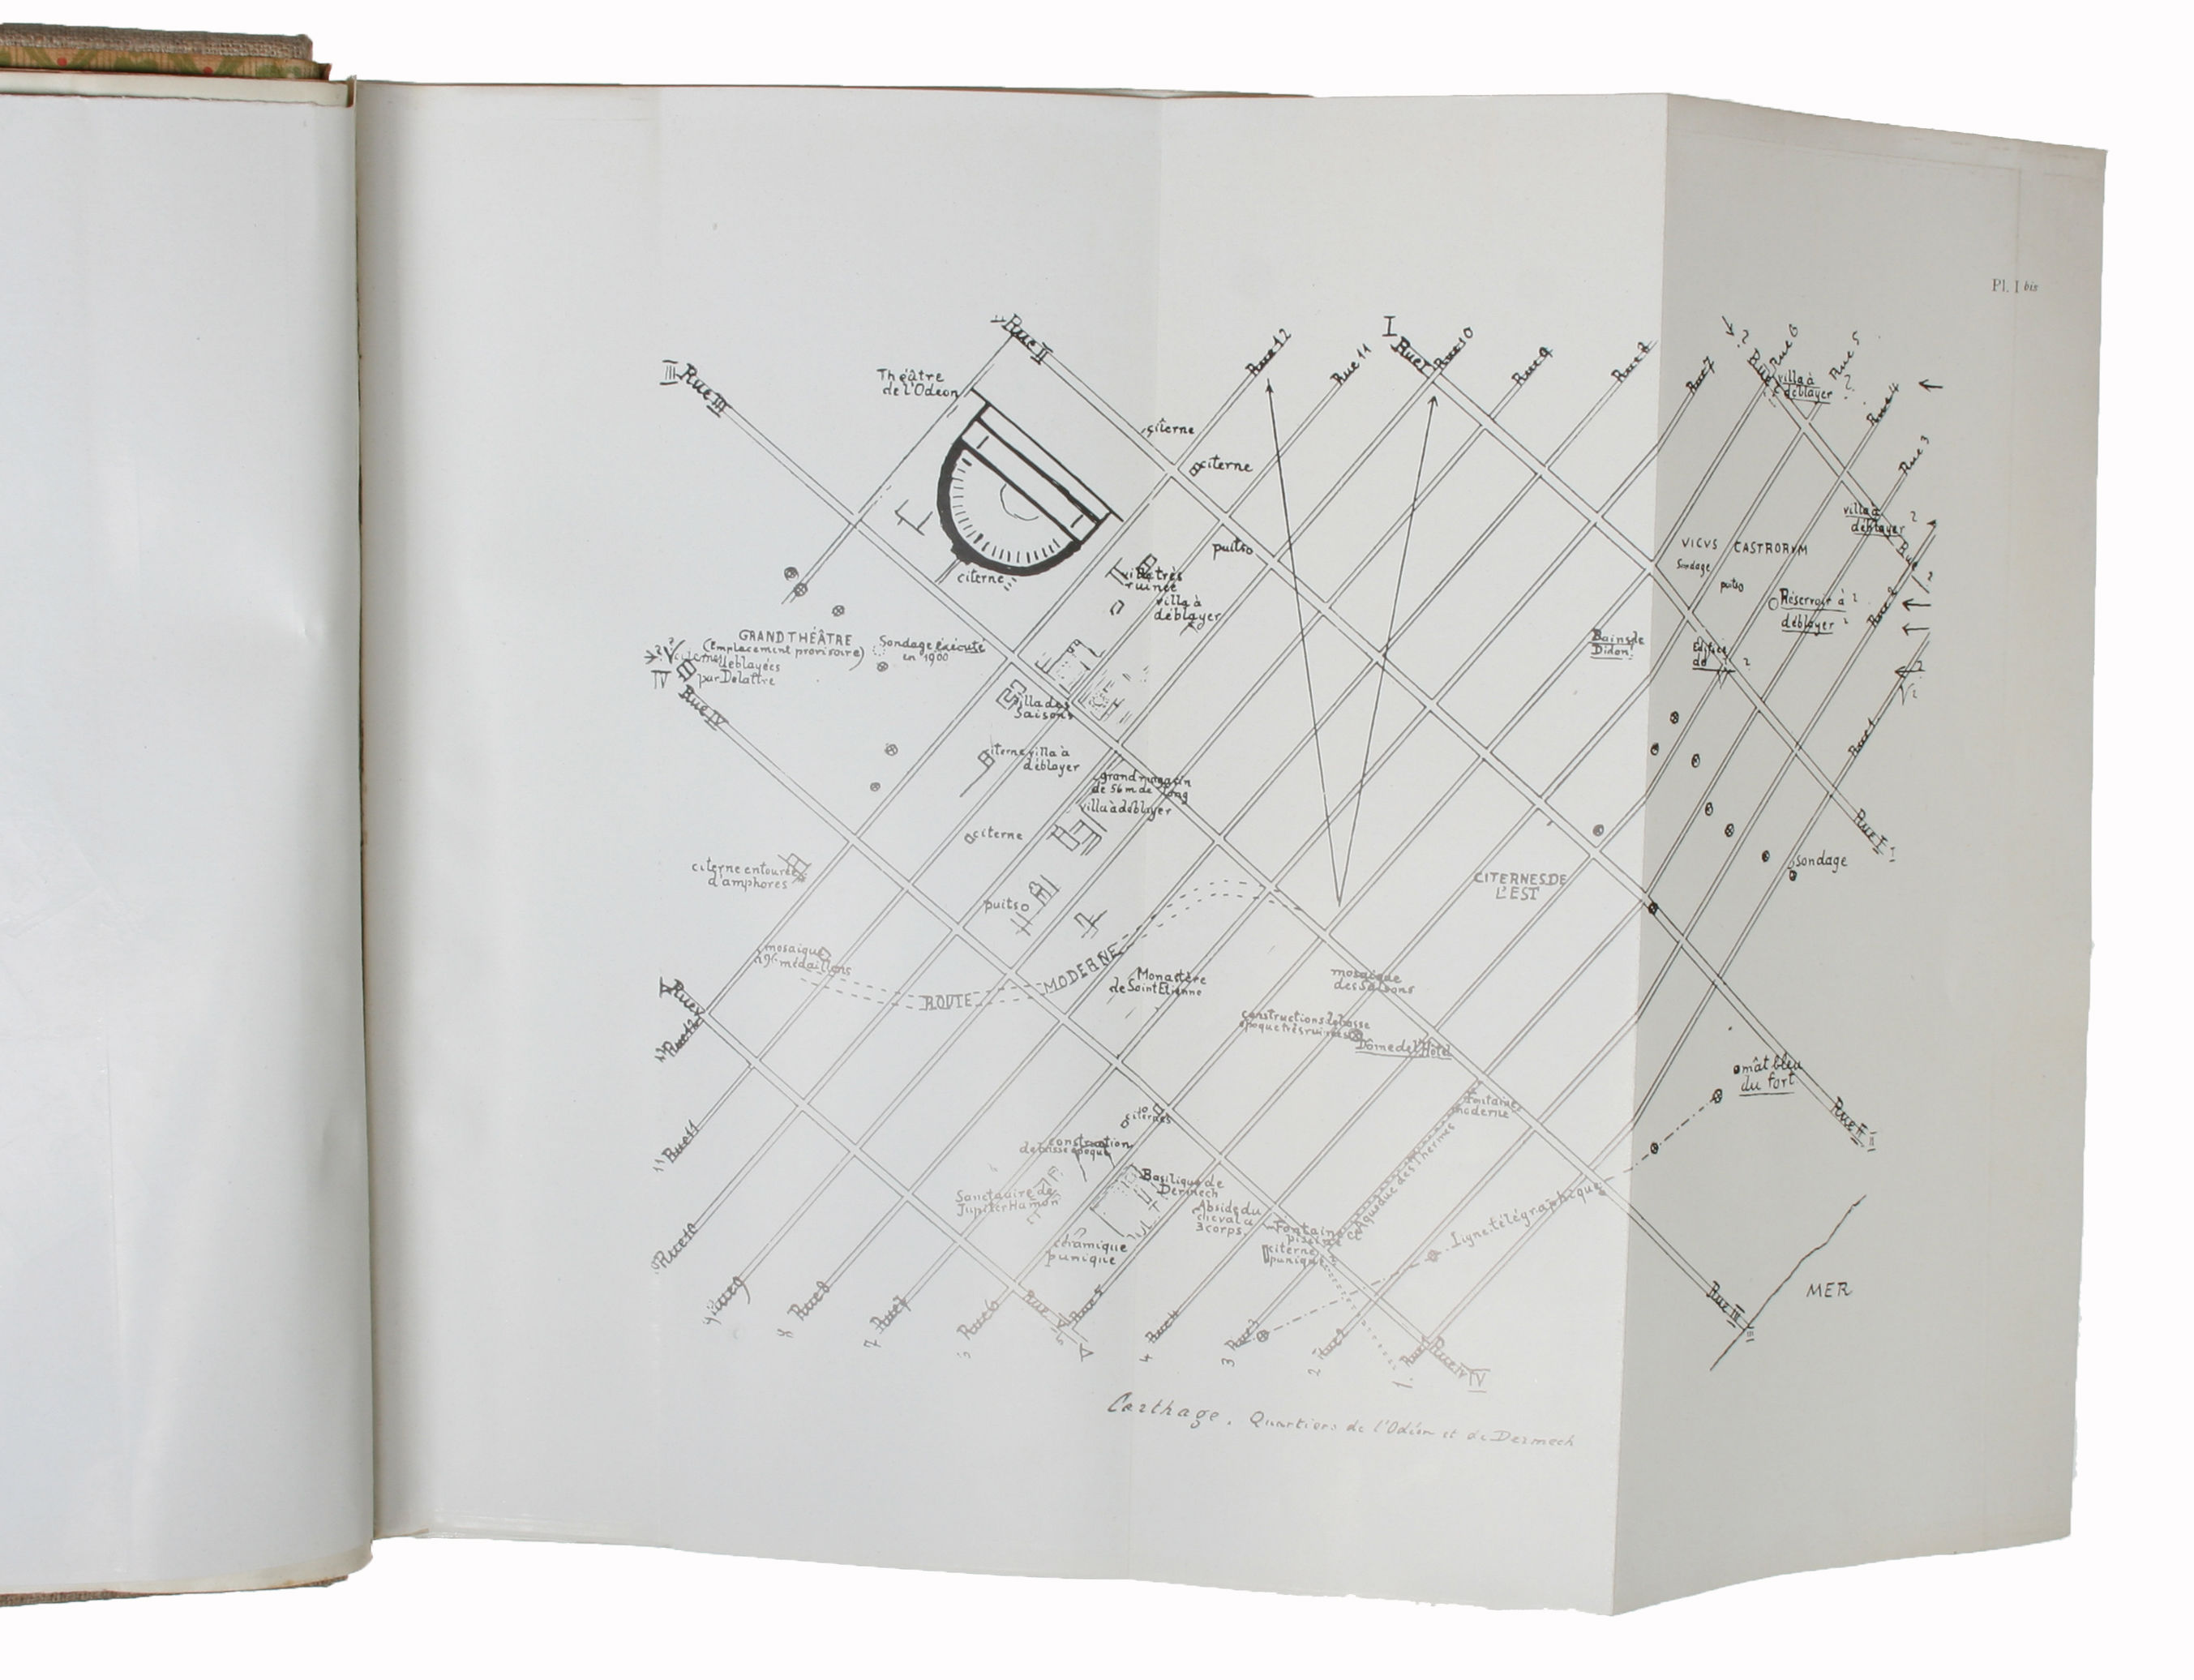 Pl. I bis
Rue II
I
Rue I
Rue 10
Rue 12
Rue 11
Rue 9
Rue 8
Rue 7
Rue 6
Rue 5
Rue 4
Rue 3
III Rue III
Théâtre
de l'Odéon
villa à
déblayer
citerne
citerne
puits
citerne
villa très
ruinée
villa à
déblayer
villa à
déblayer
VICVS CASTRORVM
Sondage
puits
Réservoir à
déblayer
Rue 2
GRAND THÉÂTRE
(Emplacement provisoire)
Sondage éxécuté
en 1900
déblayées
par Delattre
IV
Rue IV
Bains de
Didon
villa des
Saisons
Rue 1
citerne villa à
déblayer
grand magasin
de 56 m de long
villa à déblayer
citerne
Rue I
I
citerne entourée
d'amphores
puits
CITERNES DE
L'EST
sondage
mosaïque
médaillons
ROUTE MODERNE
Monastère
de Saint Etienne
mosaïque
des Saisons
Rue V
Rue 12
constructions de basse
époque très ruinées
Dôme de l'Hôtel
mât bleu
du fort
Fontaine
moderne
Rue II
II
citernes
construction
de basse époque
11 Rue 11
Basilique de
Dermech
Sanctuaire de
Jupiter Hamon
Abside du
cheval à
3 corps.
Aqueduc des Thermes
Ligne télégraphique
Fontaine
piscine
citerne
punique
céramique
punique
Rue 10
MER
9 Rue 9
8 Rue 8
7 Rue 7
Rue 6
Rue V
V
Rue 5
4 Rue 4
3 Rue 3
2 Rue 2
1. Rue 1
Rue IV
IV
Rue III
III
Carthage. Quartiers de l'Odéon et de Dermech